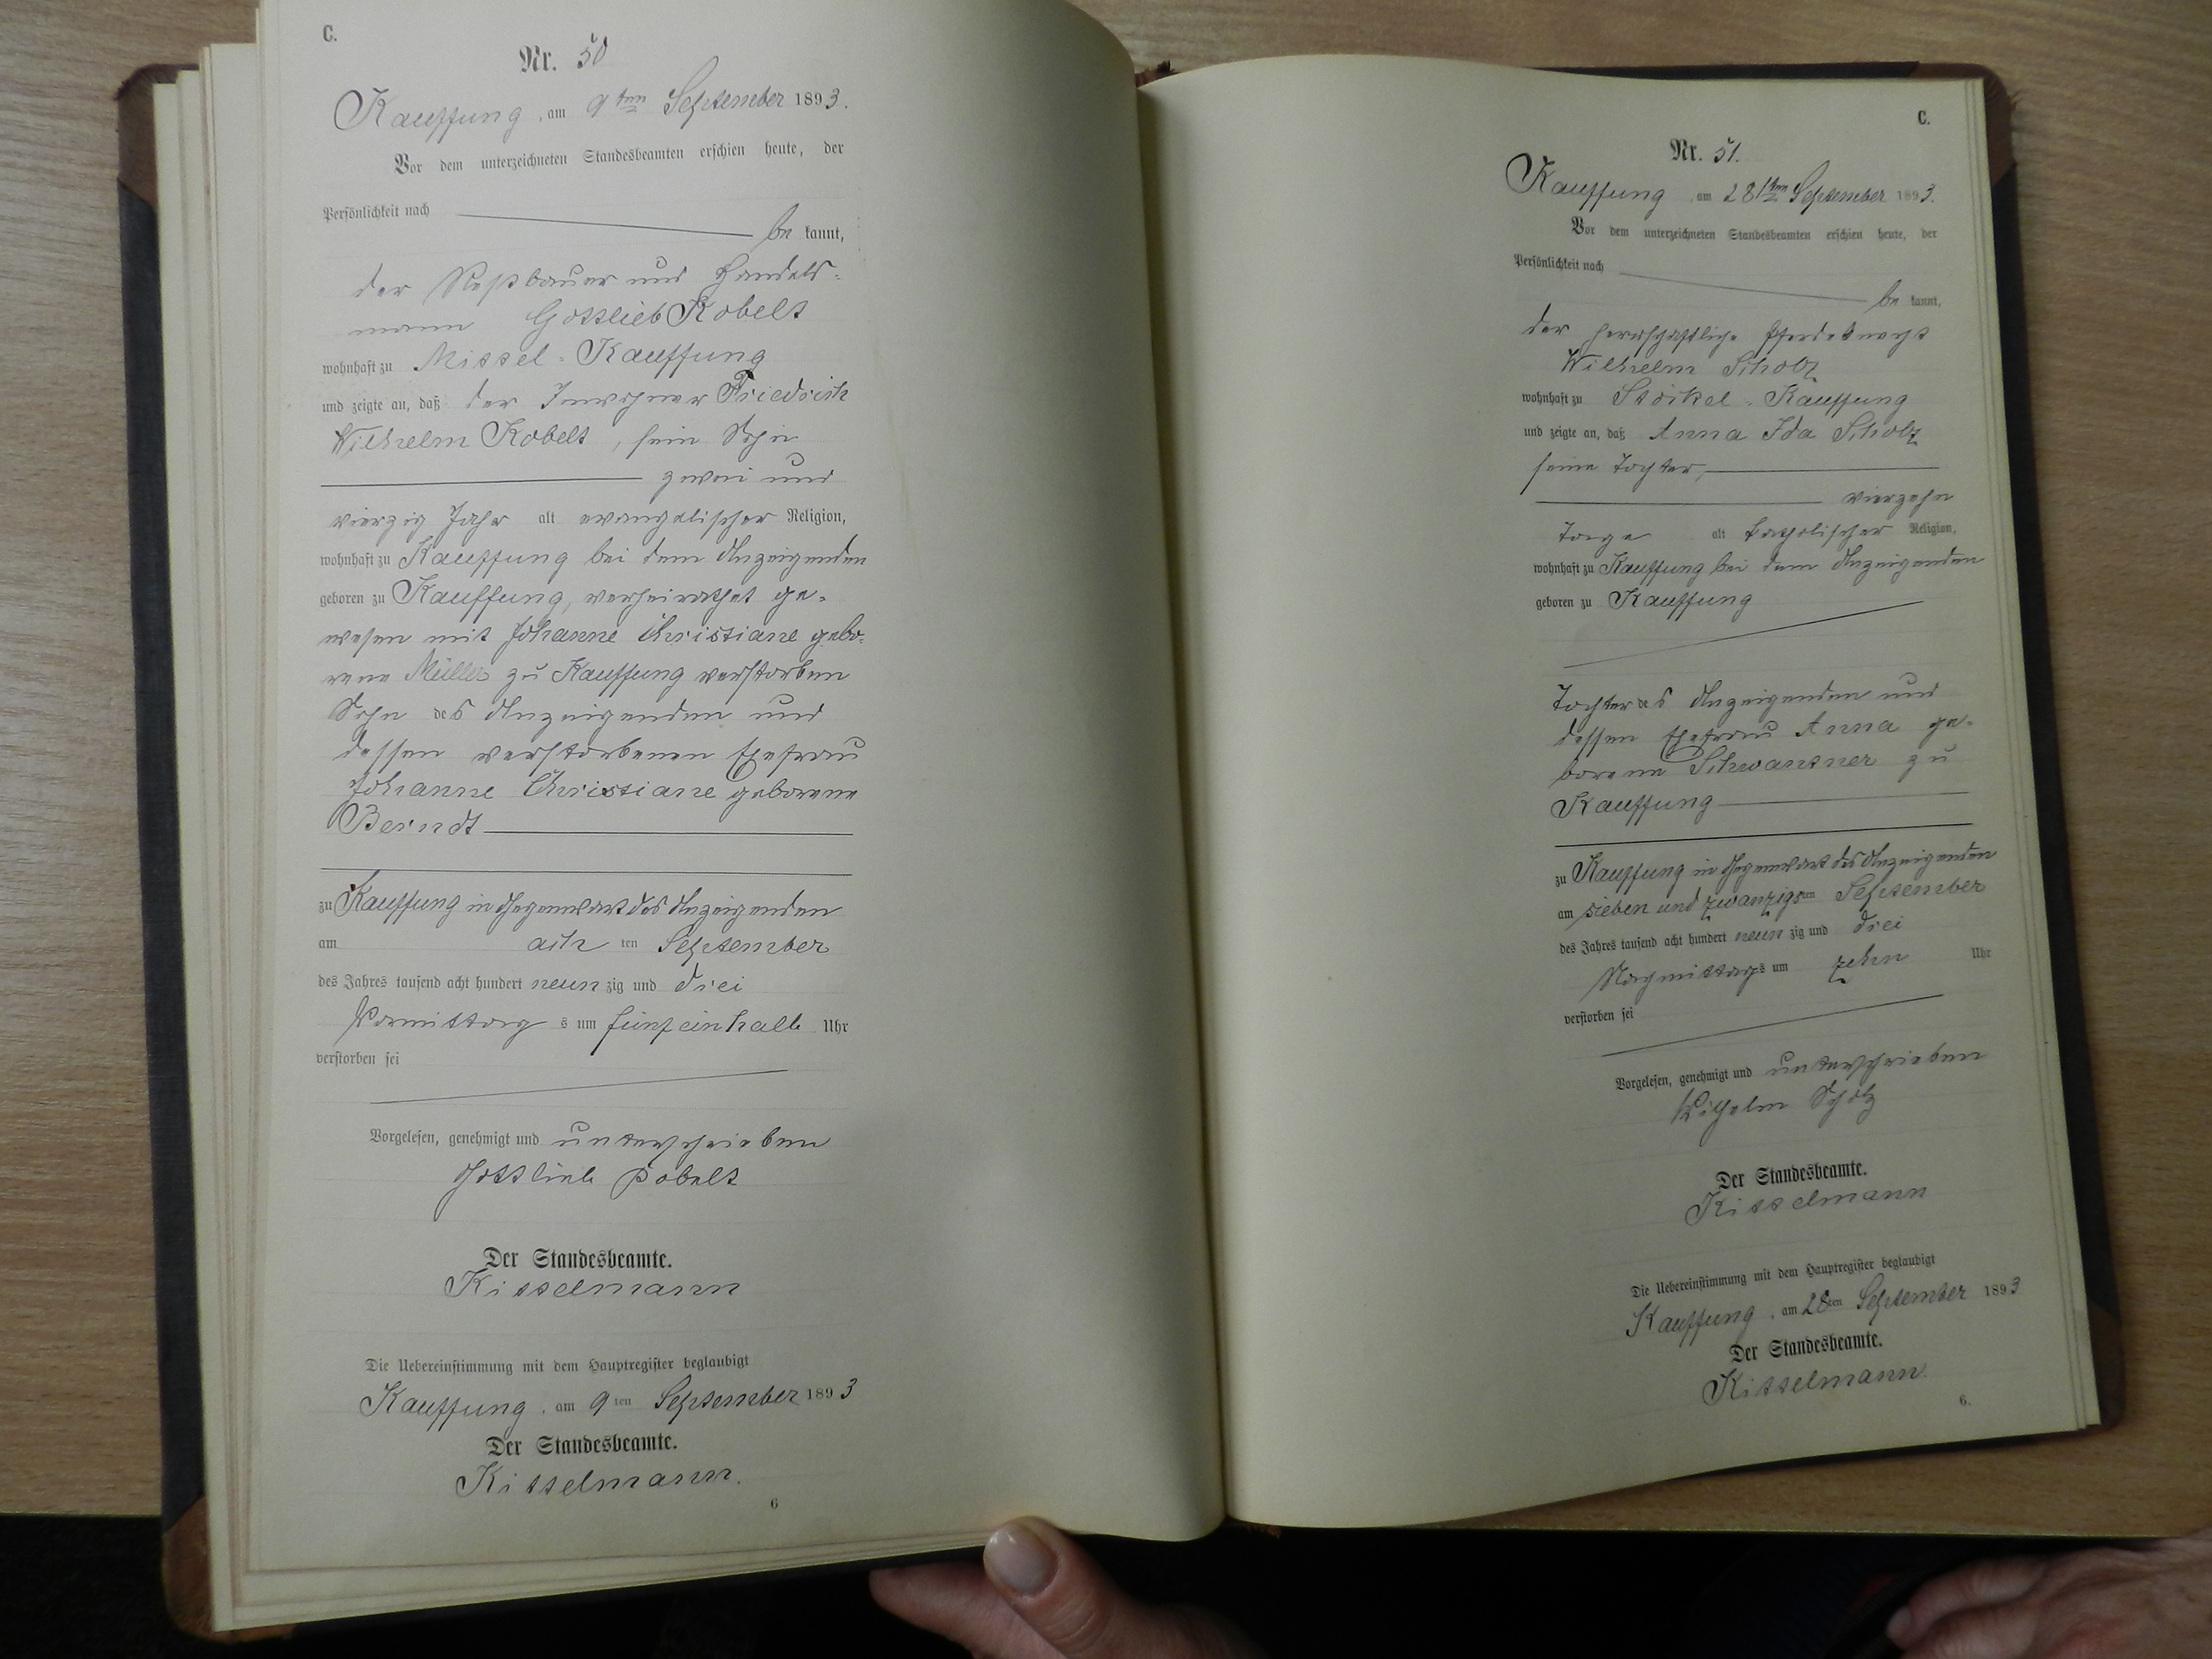 C.
Nr. 50
Kauffung, am 9ten September 1893.
Vor dem unterzeichneten Standesbeamten erschien heute, der
Persönlichkeit nach be kannt,
der Restbauer und Handels-
mann Gottlieb Kobelt
wohnhaft zu Mittel-Kauffung
und zeigte an, daß der Inwohner Friedrich
Wilhelm Kobelt, sein Sohn
zwei und
vierzig Jahr alt evangelischer Religion,
wohnhaft zu Kauffung bei dem Anzeigenden
geboren zu Kauffung, verheirathet ge-
wesen mit Johanne Christiane gebo-
rene Müller zu Kauffung verstorben
Sohn des Anzeigenden und
dessen verstorbenen Ehefrau
Johanne Christiane geborene
Berndt
zu Kauffung in Gegenwart des Anzeigenden
am acht ten September
des Jahres tausend acht hundert neun zig und drei
Vormittag s um fünf ein halb Uhr
verstorben sei
Vorgelesen, genehmigt und unterschrieben
Gottlieb Kobelt
Der Standesbeamte.
Kisselmann
Die Uebereinstimmung mit dem Hauptregister beglaubigt
Kauffung, am 9ten September 1893
Der Standesbeamte.
Kisselmann.
6
C.
Nr. 51.
Kauffung am 28ten September 1893.
Vor dem unterzeichneten Standesbeamten erschien heute, der
Persönlichkeit nach be kannt,
der herrschaftliche Pferdeknecht
Wilhelm Scholz
wohnhaft zu Stöckel-Kauffung
und zeigte an, daß Anna Ida Scholz
seine Tochter,
vierzehn
Tage alt katholischer Religion,
wohnhaft zu Kauffung bei dem Anzeigenden
geboren zu Kauffung
Tochter des Anzeigenden und
dessen Ehefrau Anna ge-
borene Schwantner zu
Kauffung
zu Kauffung in Gegenwart des Anzeigenden
am sieben und zwanzigsten September
des Jahres tausend acht hundert neun zig und drei
Nachmittags um zehn Uhr
verstorben sei
Vorgelesen, genehmigt und unterschrieben
Wilhelm Scholz
Der Standesbeamte.
Kisselmann
Die Uebereinstimmung mit dem Hauptregister beglaubigt
Kauffung, am 28ten September 1893
Der Standesbeamte.
Kisselmann.
6.